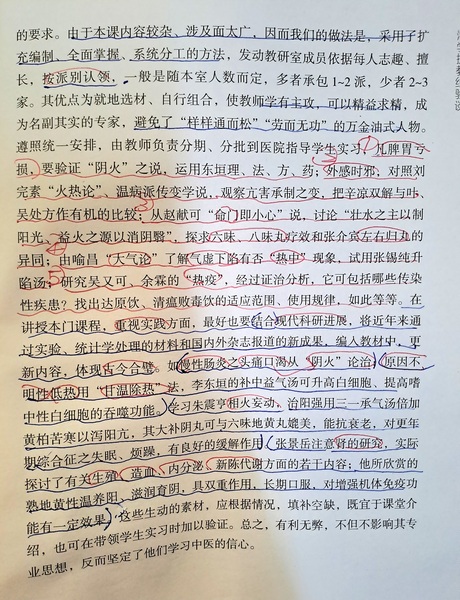 的要求。由于本课内容较杂、涉及面太广，因而我们的做法是，采用了扩
充编制、全面掌握、系统分工的方法，发动教研室成员依据每人志趣、擅
长，按派别认领，一般是随本室人数而定，多者承包1~2派，少者2~3
家。其优点为就地选材、自行组合，使教师学有主攻，可以精益求精，成
为名副其实的专家，避免了“样样通而松”“劳而无功”的万金油式人物。
遵照统一安排，由教师负责分期、分批到医院指导学生实习，凡脾胃亏
损，要验证“阴火”之说，运用东垣理、法、方、药；外感时邪，对照刘
完素“火热论”、温病派传变学说，观察亢害承制之变，把辛凉双解与叶、
吴处方作有机的比较；从赵献可“命门即小心”说，讨论“壮水之主以制
阳光、益火之源以消阴翳”，探求六味、八味丸疗效和张介宾左右归丸的
异同；由喻昌“大气论”了解气虚下陷有否“热中”现象，试用张锡纯升
陷汤；研究吴又可、余霖的“热疫”，经过证治分析，它可包括哪些传染
性疾患？找出达原饮、清瘟败毒饮的适应范围、使用规律，如此等等。在
讲授本门课程，重视实践方面，最好也要结合现代科研进展，将近年来通
过实验、统计学处理的材料和国内外杂志报道的新成果，编入教材中，更
新内容，体现古今合璧。如慢性肠炎之头痛口渴从“阴火”论治，原因不
明性低热用“甘温除热”法，李东垣的补中益气汤可升高白细胞、提高嗜
中性白细胞的吞噬功能。学习朱震亨相火妄动，治阳强用三一承气汤倍加
黄柏苦寒以泻阳亢，其大补阴丸可与六味地黄丸媲美，能抗衰老，对更年
期综合征之失眠、烦躁，有良好的缓解作用。张景岳注意肾的研究，实际
探讨了有关生殖、造血、内分泌、新陈代谢方面的若干内容；他所欣赏的
熟地黄性温养阳、滋润育阴，具双重作用，长期口服，对增强机体免疫功
能有一定效果。这些生动的素材，应根据情况，填补空缺，既宜于课堂介
绍，也可在带领学生实习时加以验证。总之，有利无弊，不但不影响其专
业思想，反而坚定了他们学习中医的信心。